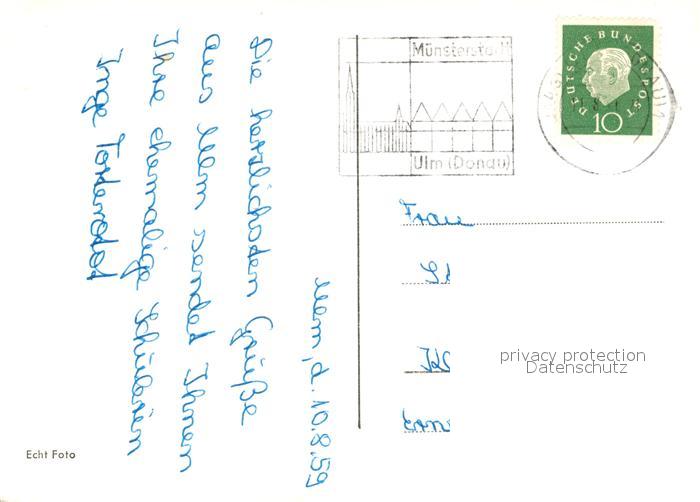 Münsterstadt
Ulm (Donau)
DEUTSCHE BUNDESPOST
10
Ulm, d. 10.8.59
Die herzlichsten Grüße
aus Ulm sendet Ihnen
Ihre ehemalige Schülerin
Inge
Frau
privacy protection
Datenschutz
Echt Foto